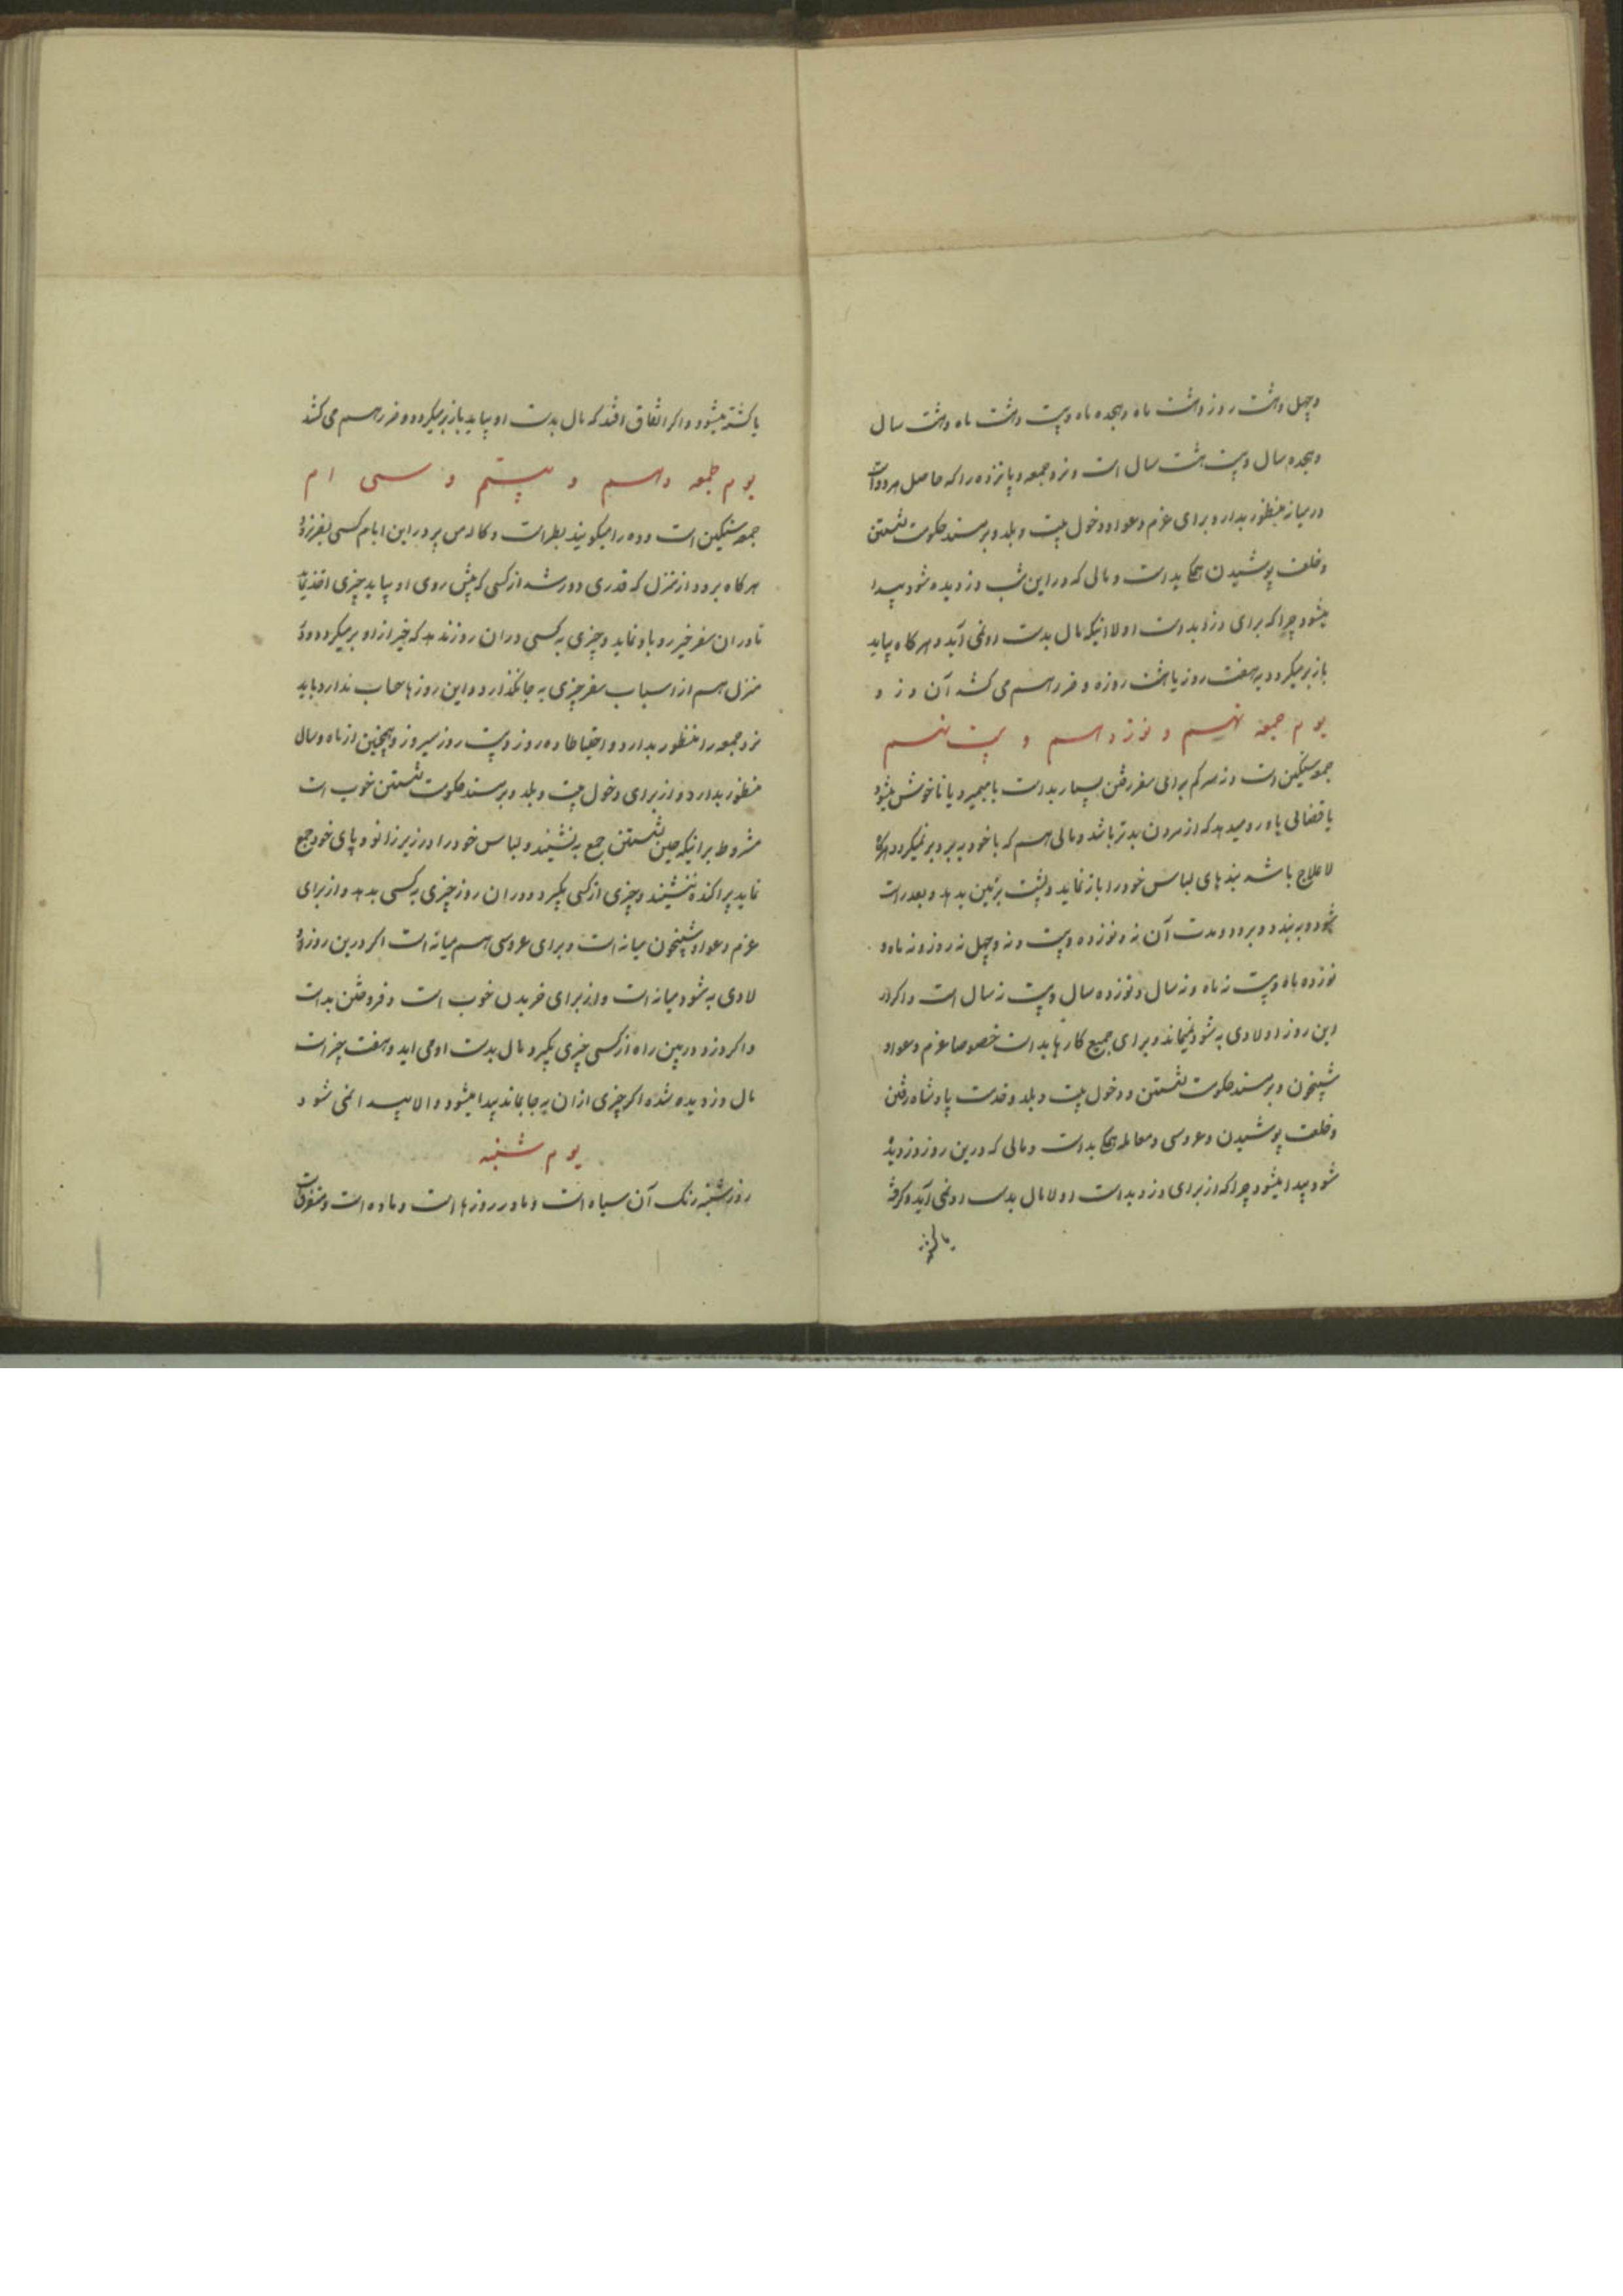 وچهل وهشت روز وهشت ماه وهجده ماه وبیست وهشت ماه وهشت سال
وهجده سال وبیست هشت سال است ونزد جمعه وپانزده را که حاصل هر دو است
در میانه منظور بدارد وبرای عزم دعوا ودخول بیت وبلد وبرمسند حکومت نشستن
وخلعت پوشیدن همکی بد است ومالی که در این شب دزدیده شود پیدا
میشود چرا که برای دزد بد است اولا اینکه مال بدست او نمی آید وهرکاه بیاید
باز برمیکردد به هفت روز یا هشت روزه وضرر هم می کشد آن دزد
یوم جمعه نهم و نوزدهم و بیست نهم
جمعه سنکین است ونه هر کم برای سفر رفتن بسیار بد است یا میمیرد یا ناخوش میشود
یا قضائی باو رو میدهد که از مردن بدتر باشد ومالی هم که با خود به برد برنمیکردد هرکاه
لاعلاج باشد بندهای لباس خود را باز نماید وپشت بزمین بدهد وبعد راست
شود وبه بندد وبرود ومدت آن نه ونوزده وبیست ونه وچهل نه روز ونه ماه و
نوزده ماه وبیست نه ماه ونه سال ونوزده سال وبیست نه سال است واکر در
این روز اولادی به شود نمیماند وبرای جمیع کارها بد است خصوصا عزم دعوا و
شبیخون وبرمسند حکومت نشستن ودخول بیت وبلد وخدمت پادشاه رفتن
وخلعت پوشیدن وعروسی ومعامله همکی بد است ومالی که درین روز دزدیده
شود پیدا میشود چرا که از برای دزد بد است اولا مال بدست او نمی آید وکرفته
یا کشته
یا کشته میشود واکر اتفاق افتد که مال بدست او بیاید باز برمیکردد وضرر هم می کشد
یوم جمعه دهم و بیستم و سی ام
جمعه سنکین است وده را میکویند بطر است در این ایام کسی بسفر نرود
هرکاه برود از منزل که قدری دور شد از کسی که پیش روی او بیاید چیزی اخذ نماید
تا در ان سفر خیر رو باو نماید وچیزی به کسی در ان روز ندهد که خیر از او برمیکردد ودر
منزل هم از اسباب سفر چیزی به جا نکذارد واین روزها حساب ندارد باید
نزد جمعه را منظور بدارد واحتیاطا ده روز وبیست روز سیروز وهمچنین از ماه وسال
منظور بدارد واز برای دخول بیت وبلد وبرمسند حکومت نشستن خوب است
مشروط برانیکه حین نشستن جمع به نشیند ولباس خود را در زیر زانو وپای خود جمع
نماید پراکنده ننشیند وچیزی از کسی بکیرد ودر ان روز چیزی به کسی بدهد واز برای
عزم دعوا وشبیخون میانه است وبرای عروسی هم میانه است اکر درین روز او
لادی به شود میانه است واز برای خریدن خوب است وفروختن بد است
واکر دزد در بین راه از کسی چیزی بکیرد مال بدست او می اید وهفت چیز است
مال دزدیده شده اکر چیزی ازان به جا بماند پیدا میشود والا پیدا نمی شود
یوم شنبه
روز شنبه رنک آن سیاه است ومادر روزها است وماده است ومتفرقات